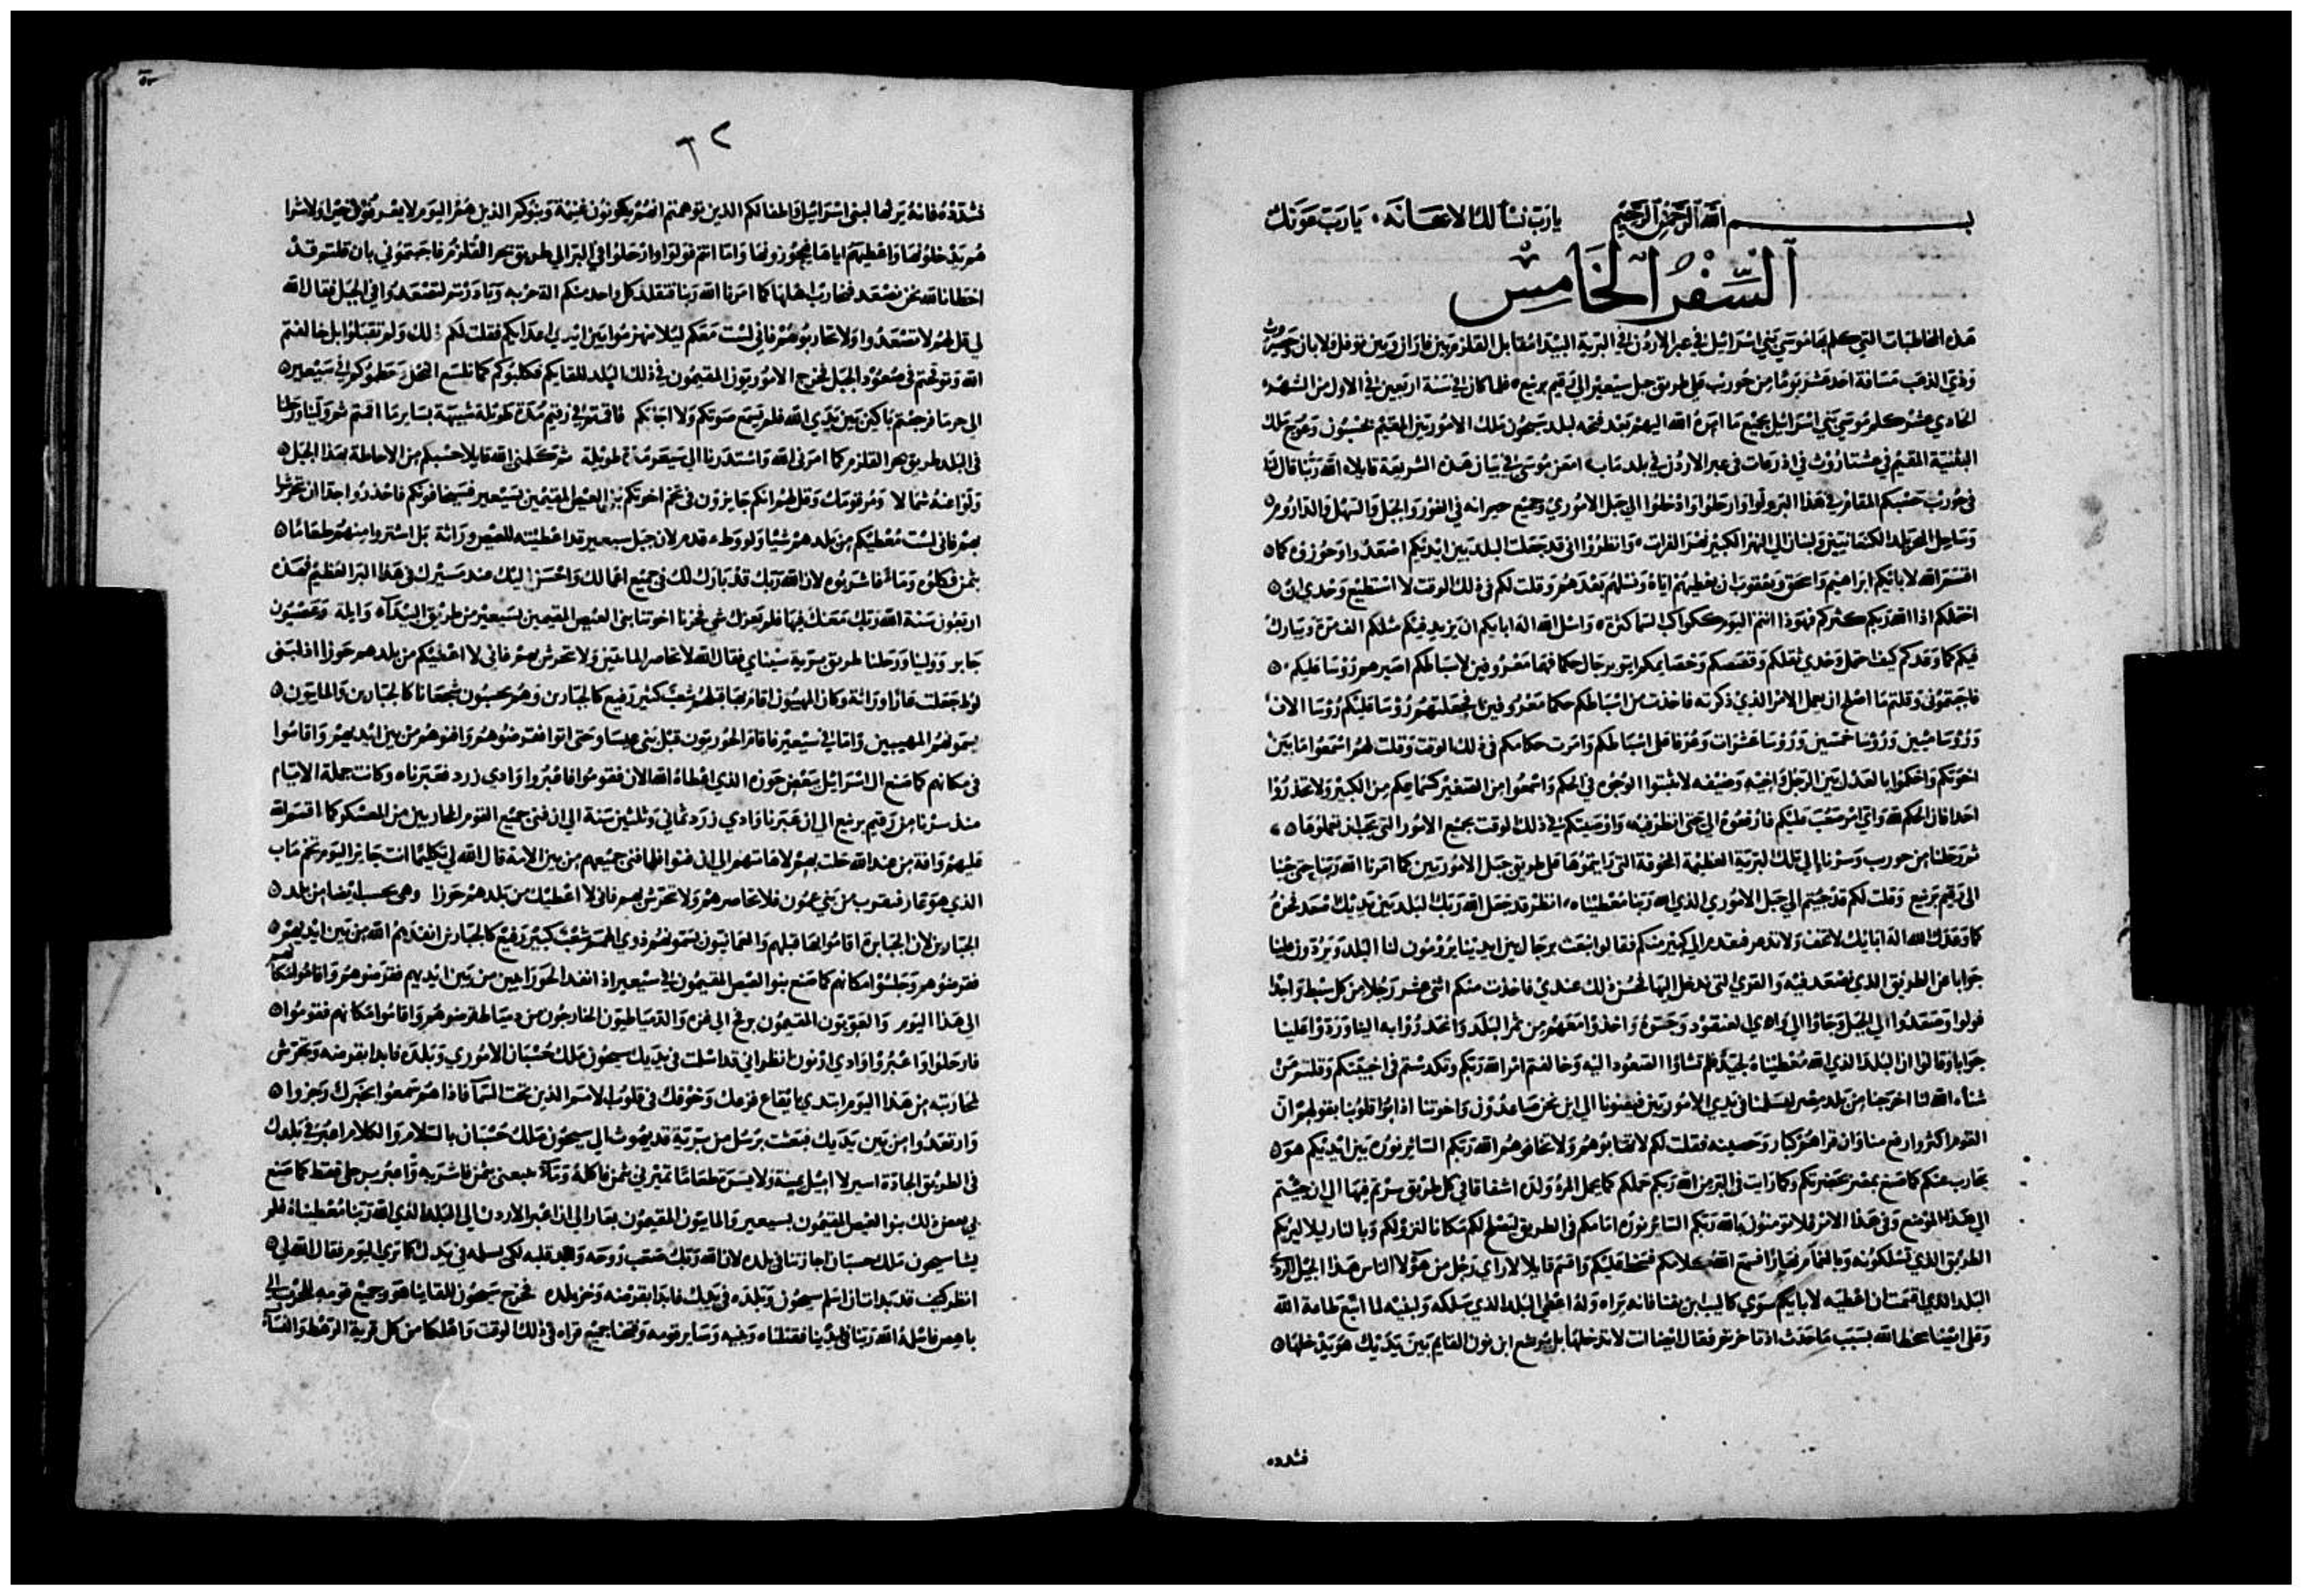 بسم الله الرحمن الرحيم يا رب نسألك الاعانه ٠ يا رب عونك
السفر الخامس
هذه المخاطبات التي كلم بها موسي بني اسرائيل في عبر الاردن في البرية البيدا مقابل القلزم بين فاران وبين توفل ولابان وحصروث
وذي الذهب مسافة احد عشر يوما من حوريب علي طريق جبل سيعير الي رقيم برنيع ٥ فلما كان في سنة اربعين في الاول من الشهر
الحادي عشر كلم موسي بني اسرائيل بجميع ما امره الله اليهم بعد فتحه لبلد سيحون ملك الاموريين المقيم بحسبون وعوج ملك
البثنية المقيم في عشتاروث في اذرعات في عبر الاردن في بلد ماب امعن موسي في بيان هذه الشريعة قايلا الله ربنا قال لنا
في حوريب حسبكم المقام في هذا البر ولوا وارحلوا وادخلوا الي جبل الاموري وجميع جيرانه في الغور والجبل والسهل والداروم ٥
وساحل البحر بلد الكنعانيين ولبنان الي النهر الكبير نهر الفرات وانظروا اني قد جعلت البلد بين ايديكم اصعدوا وحوزوه كما ٥
اقسم الله لابايكم ابراهيم واسحق ويعقوب ان يعطيهم اياه ونسلهم بعدهم وقلت لكم في ذلك الوقت لا استطيع وحدي ان ٥
احملكم اذا الله ربكم كثركم فهوذا انتم اليوم ككواكب السما كثرة واسل الله اله ابايكم ان يزيد فيكم مثلكم الف مرة ويبارك
فيكم كما وعدكم كيف احمل وحدي ثقلكم وقصصكم وخصايمكم ايتوا برجال حكما فهما معروفين لاسباطكم اصيرهم روسا عليكم ٥
فاجبتموني وقلتم ما اصلح ان يعمل الامر الذي ذكرته فاخذت من اسباطكم حكما معروفين فجعلتهم روسا عليكم روسا الاف
وروسا ميين وروسا خمسين وروسا عشرات وعرفا علي اسباطكم وامرت حكامكم في ذلك الوقت وقلت لهم اسمعوا ما بين
اخوتكم واحكموا بالعدل بين الرجل واخيه وضيفه لا تثبتوا الوجوه في الحكم واسمعوا من الصغير كسماعكم من الكبير ولا تحذروا
احدا فان الحكم لله واي امر صعب عليكم فارفعوه الي حتي انظر فيه واوصيتكم في ذلك الوقت بجميع الامور التي يجب ان تعملوها ٥
ثم رحلنا من حوريب وسرنا الي تلك البرية العظيمة المخوفة التي رايتموها علي طريق جبل الاموريين كما امرنا الله ربنا حتي جينا
الي رقيم برنيع وقلت لكم قد جيتم الي جبل الاموري الذي الله ربنا معطيناه انظر قد جعل الله ربك البلد بين يديك فاصعد فحزه
كما وعدك الله اله ابايك لا تخف ولا تذعر فتقدم الي كثير منكم فقالوا نبعث برجال بين ايدينا يروسون لنا البلد ويردون علينا
جوابا عن الطريق الذي نصعد فيه والقري التي ندخل اليها فحسن ذلك عندي فاخذت منكم اثني عشر رجلا من كل سبط واحدا
فولوا وصعدوا الي الجبل وجاوا الي وادي العنقود وجسوه واخذوا معهم من ثمر البلد وانحدروا به الينا وردوا علينا
جوابا وقالوا ان البلد الذي الله معطيناه لجيد فلم تشاوا الصعود اليه وخالفتم امر الله ربكم وتكدستم في اخبيتكم وقلتم من
شناه الله لنا اخرجنا من بلد مصر ليسلمنا في يدي الاموريين فيفنونا الي اين نحن صاعدون واخوتنا اذابوا قلوبنا بقولهم ان
القوم اكثر وارفع منا وان قراهم كبار وحصينه فقلت لكم لا تهابوهم ولا تخافوهم الله ربكم الساير نوره بين ايديكم هو ٥
يحارب عنكم كما صنع بمصر بحضرتكم وكما رايت في البر من الله ربكم حملكم كما يحمل المرء ولده اشفاقا في كل طريق سرتم فيها الي ان جيتم
الي هذا الموضع وفي هذا الامر فلا تومنون بالله ربكم الساير نوره امامكم في الطريق ليصلح لكم مكانا لنزولكم وبالنار ليلا ليريكم
الطريق الذي تسلكونه وبالغمام نهارا فسمع الله كلامكم فسخط عليكم واقسم قايلا لا راي رجل من هولا الناس هذا الجيل الردي
البلد الذي اقسمت ان اعطيه لابايكم سوي كاليب ابن يفنا فانه يراه وله اعطي البلد الذي سلكه ولبنيه لما اتبع طاعة الله
وعلي ايضا سخط الله بسبب ما حدث اذ تاخرتم فقال ايضا انت لا تدخلها بل يوشع ابن نون القايم بين يديك هو يدخلها ٥
فشدده
٦٢
فشدده فانه يرثها لبني اسرائيل واطفالكم الذين توهمتم انهم يكونون غنيمة وبنوكم الذين هم اليوم لا يعرفون خيرا ولا شرا
هم يدخلونها واعطيهم اياها فيحوزونها واما انتم فولوا وارحلوا في البر الي طريق بحر القلزم فاجبتموني بان قلتم قد
اخطانا لله نحن نصعد فنحارب اهلها كما امرنا الله ربنا فتقلد كل واحد منكم الة حربه وبادرتم لتصعدوا في الجبل فقال الله
لي قل لهم لا تصعدوا ولا تحاربوهم فاني لست معكم ليلا تهزموا بين ايدي اعدايكم فقلت لكم ذلك ولم تقبلوا بل خالفتم
الله وتوقحتم في صعود الجبل فخرج الاموريون المقيمون في ذلك البلد للقايكم فكلبوكم كما تلسع النحل وحطموكم في سيعير ٥
الي حرما فرجعتم باكين بين يدي الله فلم يسمع صوتكم ولا اجابكم فاقمتم في رقيم مدة طويلة شبيهة بساير ما اقمتم ثم ولينا ورحلنا
في البلد طريق بحر القلزم كما امرني الله واستدرنا الي سيعير مدة طويلة ثم كلمني الله قايلا حسبكم من الاحاطة بهذا الجبل ٥
ولوا عنه شمالا ومر قومك وقل لهم انكم جايزون في تخم اخوتكم بني العيص المقيمين بسيعير فسيخافونكم فاحذروا جدا ان تتحرشوا
بهم فاني لست معطيكم من بلدهم شيا ولو وطء قدم لان جبل سيعير قد اعطيته للعيص وراثة بل اشتروا منهم طعاما ٥
بثمن فكلوه وماء فاشربوه لان الله ربك قد بارك لك في جميع اعمالك واحسن اليك منذ مسيرك في هذا البر العظيم فهذه
اربعون سنة الله ربك معك فيها فلم يعوزك شي فجزنا اخوتنا بني العيص المقيمين بسيعير من طريق البيداء وايلة وعصيون
جابر وولينا ورحلنا طريق برية سيناي فقال الله لا تحاصر المابيين ولا تتحرش بهم فاني لا اعطيكم من بلدهم حوزا اذ لبني
لوط جعلت عارا وراثة وكان المهيبون اقاموا بها قبلهم شعب كثير رفيع كالجبارين وهم يحسبون شجعانا كالجبارين والمابيون ٥
يسمونهم المهيبين واما في سيعير فاقام الحوريون قبل بني عيسا وحتي اتوا فقرضوهم وافنوهم من بين ايديهم واقاموا
في مكانهم كما صنع ال اسرائيل ببعض حوزه الذي اعطاه الله الان فقوموا فاعبروا وادي زرد فعبرناه وكانت جملة الايام
منذ سرنا من رقيم برنيع الي ان عبرنا وادي زرد ثماني وثلثين سنة الي ان فني جميع القوم المحاربين من المعسكر كما اقسم الله
عليهم وافة من عند الله حلت بهم لاماتتهم الي ان فنوا فلما فني جميعهم من بين الامة قال الله لي تكليما انت جايز اليوم تخم ماب
الذي هو عار فتقرب من بني عمون فلا تحاصرهم ولا تتحرش بهم فاني لا اعطيك من بلدهم حوزا وهي تحسب ايضا من بلد ٥
الجبارين لان الجبابرة اقاموا بها قبلهم والعمانيون يسمونهم ذوي الهمم شعب كبير رفيع كالجبارين انفدهم الله من بين ايديهم ٥
فقرضوهم وجلسوا مكانهم كما صنع بنو العيص المقيمون في سيعير اذ انفد الحورانيين من بين ايديهم فقرضوهم واقاموا مكانهم
الي هذا اليوم والعويون المقيمون برفح الي غزه والدمياطيون الخارجون من دمياط قرضوهم واقاموا مكانهم فقوموا ٥
فارحلوا واعبروا وادي ارنون انظر اني قد اسلمت في يديك سيحون ملك حسبان الاموري وبلده فابدا بقرضه وتحرش
لمحاربته من هذا اليوم ابتدي بايقاع فزعك وخوفك في قلوب الامم الذين تحت السما فاذا هم سمعوا بخبرك رجزوا ٥
وارتعدوا من بين يديك فبعثت برسل من برية قديموث الي سيحون ملك حسبان بالسلام والكلام اعبر في بلدك
في الطريق الجادة اسير لا اميل يمنة ولا يسرة طعاما تميرني بثمن فاكله وماء تبيعني بثمن فاشربه واعبر برجلي فقط كما صنع
بي بنو العيص المقيمون بسيعير والمابيون المقيمون بعار الي ان اعبر الاردن الي البلد الذي الله ربنا معطيناه فلم
يشا سيحون ملك حسبان اجازتنا في بلده لان الله ربك صعب روحه وايد قلبه لكي يسلمه في يدك كما تري اليوم فقال الله لي ٥
انظر كيف قد بدات ان اسلم سيحون وبلده في يديك فابدا بقرضه وحز بلده فخرج سيحون للقاينا هو وجميع قومه للحرب الي
ياهص فاسلمه الله ربنا في ايدينا فقتلناه وبنيه وساير قومه وفتحنا جميع قراه في ذلك الوقت واهلكنا من كل قرية الرهط والنساء